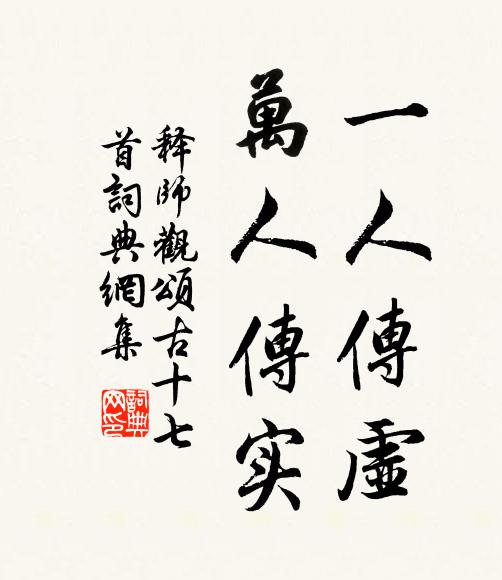 一人傳虛
萬人傳实
释師觀頌古十七
首詞典網集
詞典网印